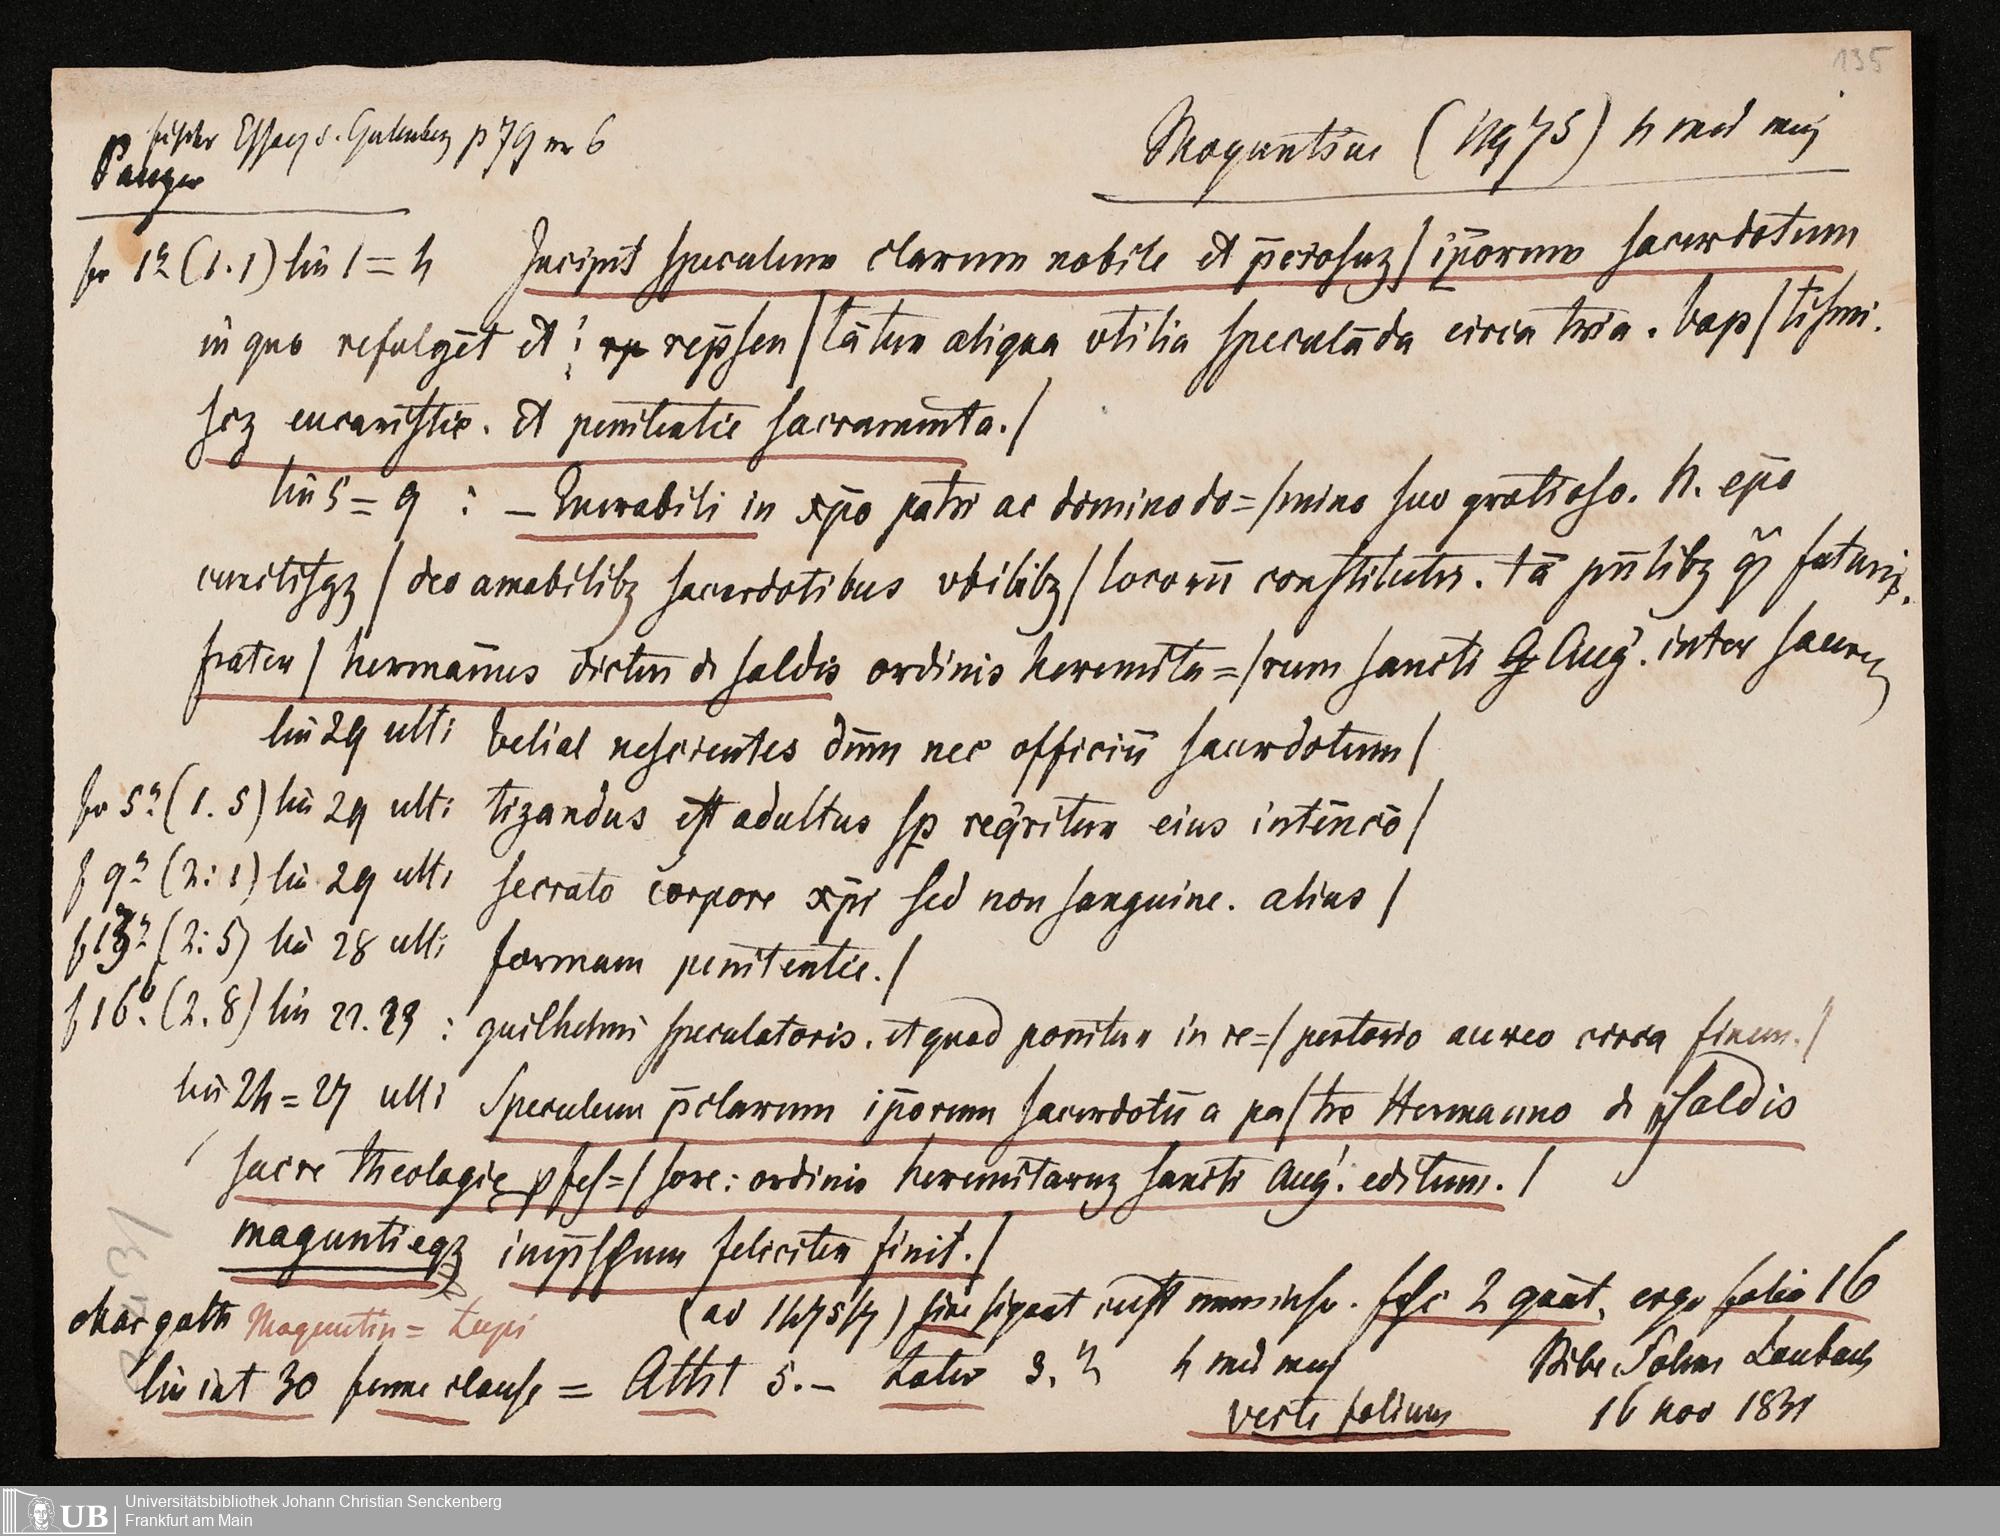 135
fischer Essay s. Gutenberg p 79 nr 6
Panzer
Moguntiae (1475) 4 med maj
fo 1a (1.1) lin 1=4 Incipit speculum clarum nobile et p̄ciosuz / ip̄orum sacerdotum
in quo refulgēt et rep̄sen / tātur aliqua vtilia speculāda circa tria. bap / tismi.
scz eucaristie. et penitentie sacramenta. /
lin 5=9 : — Venerabili in xp̄o patri ac domino do= / mino suo gratioso. N. ep̄o
cunctisqz / deo amabilibz sacerdotibus vbilibz / locorū constitutis. tā pn̄tibz q̄ futuris.
frater / hermān̄us dictus de saldis ordinis heremita= / rum sancti Aug'. inter sacre
lin 29 ulti belial nescientes dn̄m nec officiū sacerdotum /
fo 5a (1.5) lin 29 ulti tizandus est adultus sp̱ reqritur eius intēncō /
f 9a (2:1) lin 29 ulti secrato corpore xp̄i sed non sanguine. alius /
f 13a (2:5) lin 28 ulti formam penitentie. /
f 16b. (2.8) lin 22.23 : guilhelmi speculatoris. et quod ponitur in re= / pertorio aureo circa finem. /
lin 24=27 ulti Speculum p̄clarum ip̄orum sacerdotū a pa / tre Hermanno de saldis
sacre theologie p̱fes= / sore: ordinis heremitaruz sancti Aug'. editum. /
magunti eqz imp̄ssum feliciter finit. /
char goth Moguntin = Lupi (ad 1475/7) sine signat cust num inse. foc 2 quat, ergo folia 16
lin int 30 ferme clause = Attst 5. — Later 3. 4 med maj Bibe Solms Laubach
verte folium 16 nov 1831
Universitätsbibliothek Johann Christian Senckenberg
Frankfurt am Main
UB